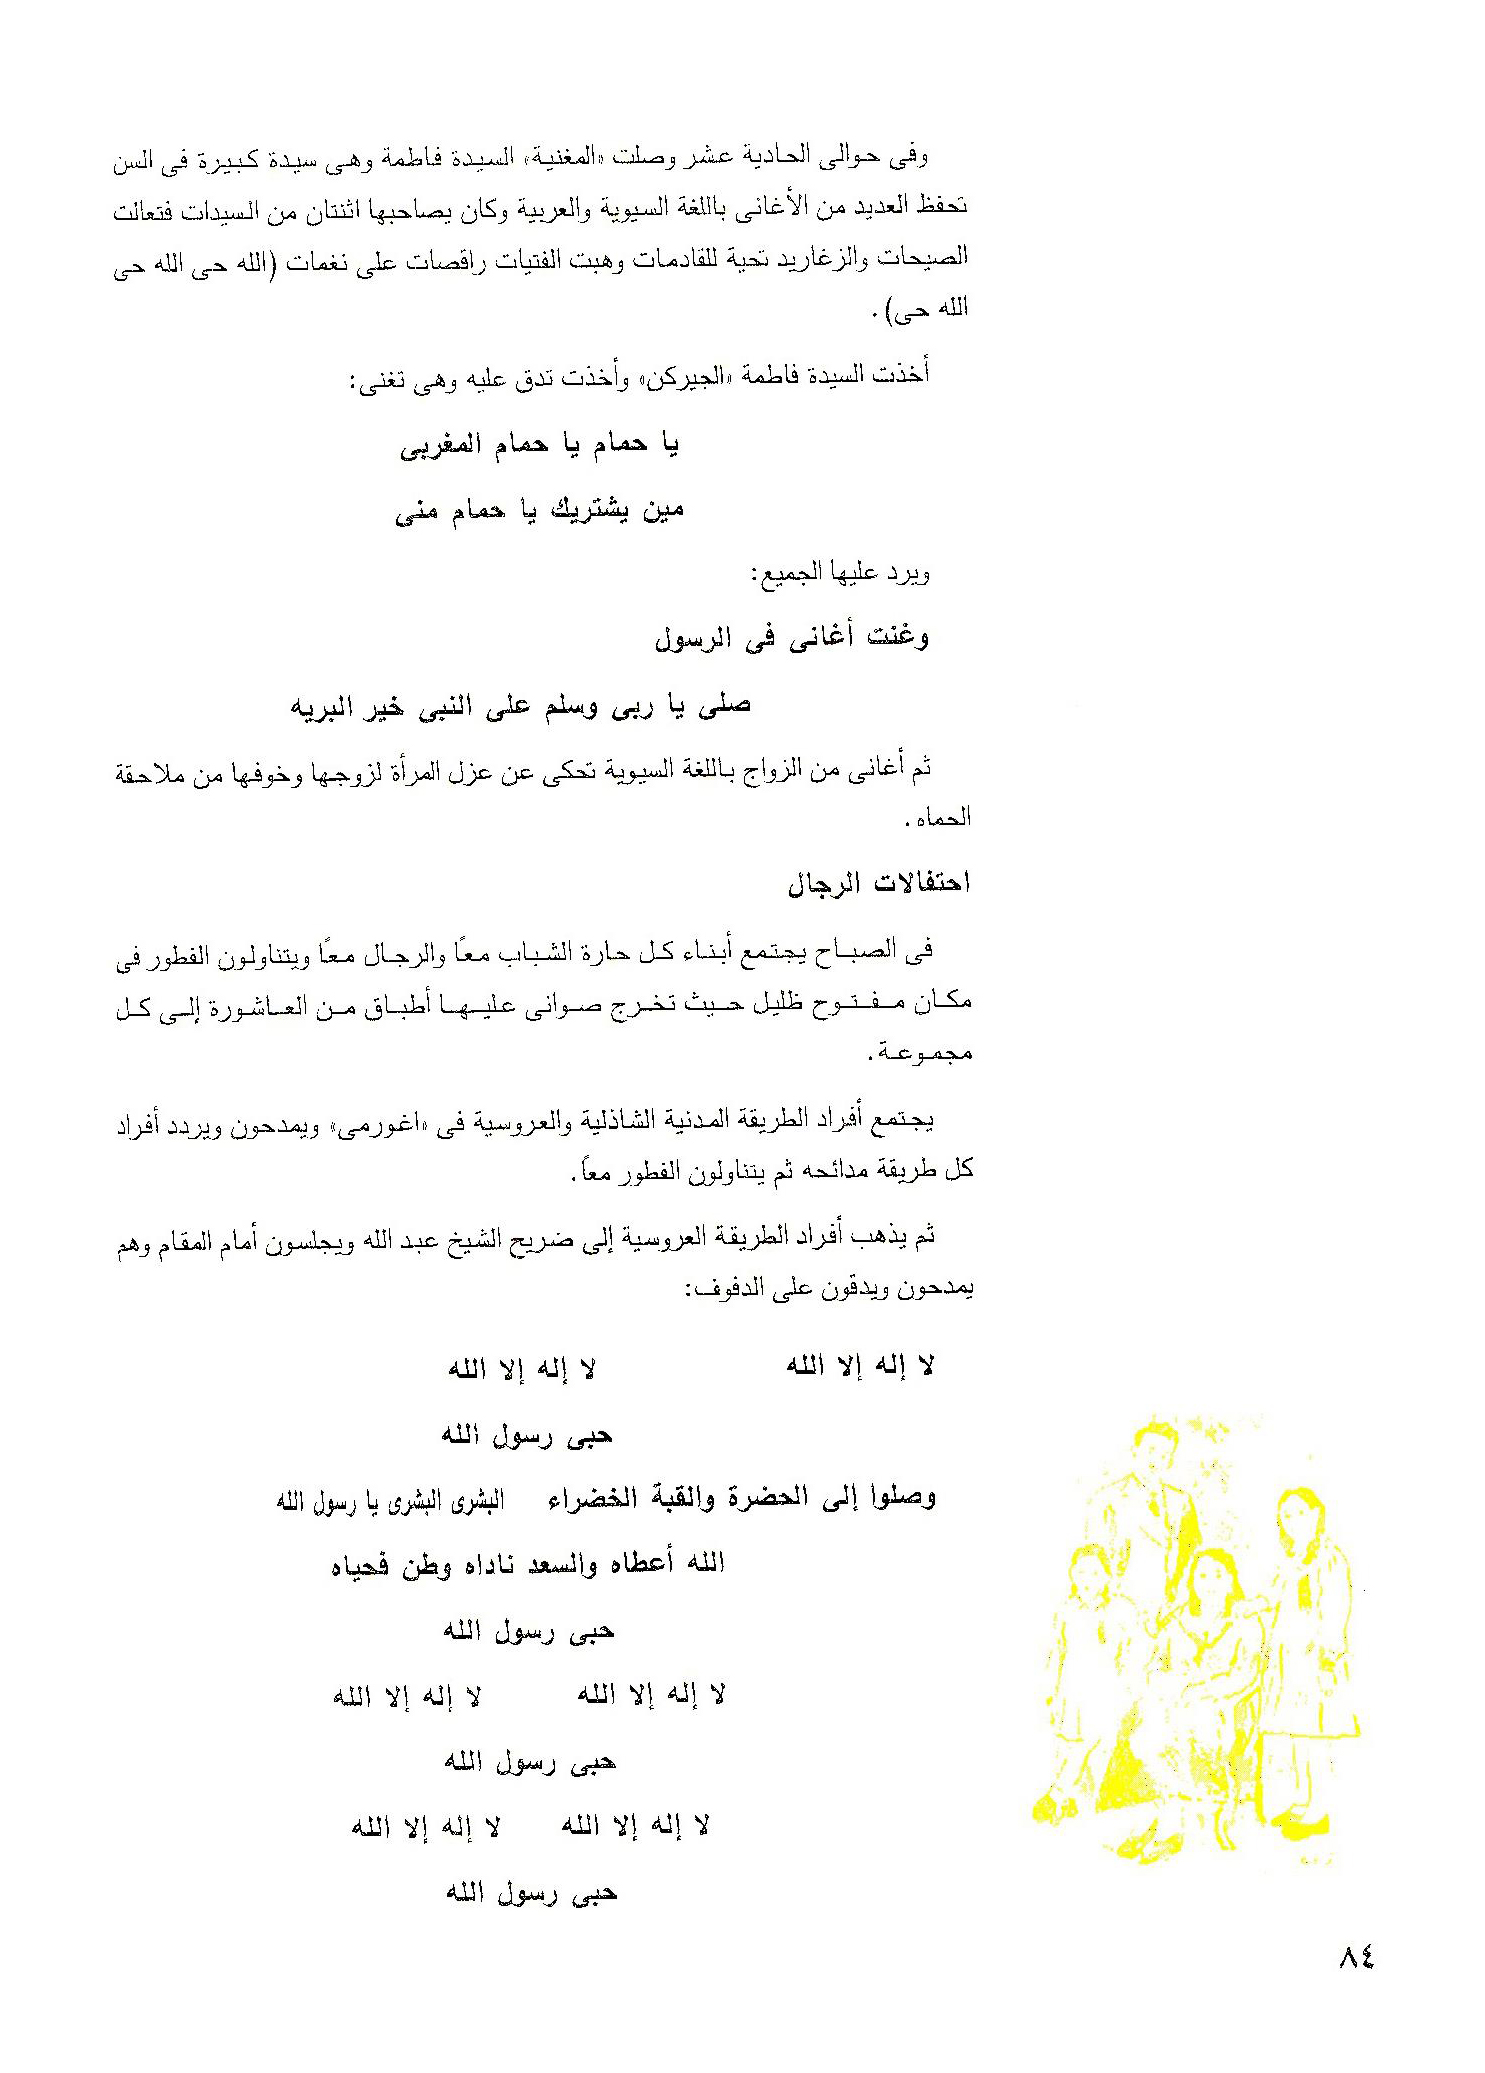 وفى حوالى الحادية عشر وصلت «المغنية» السيدة فاطمة وهى سيدة كبيرة فى السن
تحفظ العديد من الأغانى باللغة السيوية والعربية وكان يصاحبها اثنتان من السيدات فتعالت
الصيحات والزغاريد تحية للقادمات وهبت الفتيات راقصات على نغمات (الله حى الله حى
الله حى).
أخذت السيدة فاطمة «الجيركن» وأخذت تدق عليه وهى تغنى:
يا حمام يا حمام المغربى
مين يشتريك يا حمام منى
ويرد عليها الجميع:
وغنت أغانى فى الرسول
صلى يا ربى وسلم على النبى خير البريه
ثم أغانى من الزواج باللغة السيوية تحكى عن عزل المرأة لزوجها وخوفها من ملاحقة
الحماه.
احتفالات الرجال
فى الصباح يجتمع أبناء كل حارة الشباب معًا والرجال معًا ويتناولون الفطور فى
مكان مفتوح ظليل حيث تخرج صوانى عليها أطباق من العاشورة إلى كل
مجموعة.
يجتمع أفراد الطريقة المدنية الشاذلية والعروسية فى «اغورمى» ويمدحون ويردد أفراد
كل طريقة مدائحه ثم يتناولون الفطور معاً.
ثم يذهب أفراد الطريقة العروسية إلى ضريح الشيخ عبد الله ويجلسون أمام المقام وهم
يمدحون ويدقون على الدفوف:
لا إله إلا الله لا إله إلا الله
حبى رسول الله
وصلوا إلى الحضرة والقبة الخضراء البشرى البشرى يا رسول الله
الله أعطاه والسعد ناداه وطن فحياه
حبى رسول الله
لا إله إلا الله لا إله إلا الله
حبى رسول الله
لا إله إلا الله لا إله إلا الله
حبى رسول الله
٨٤